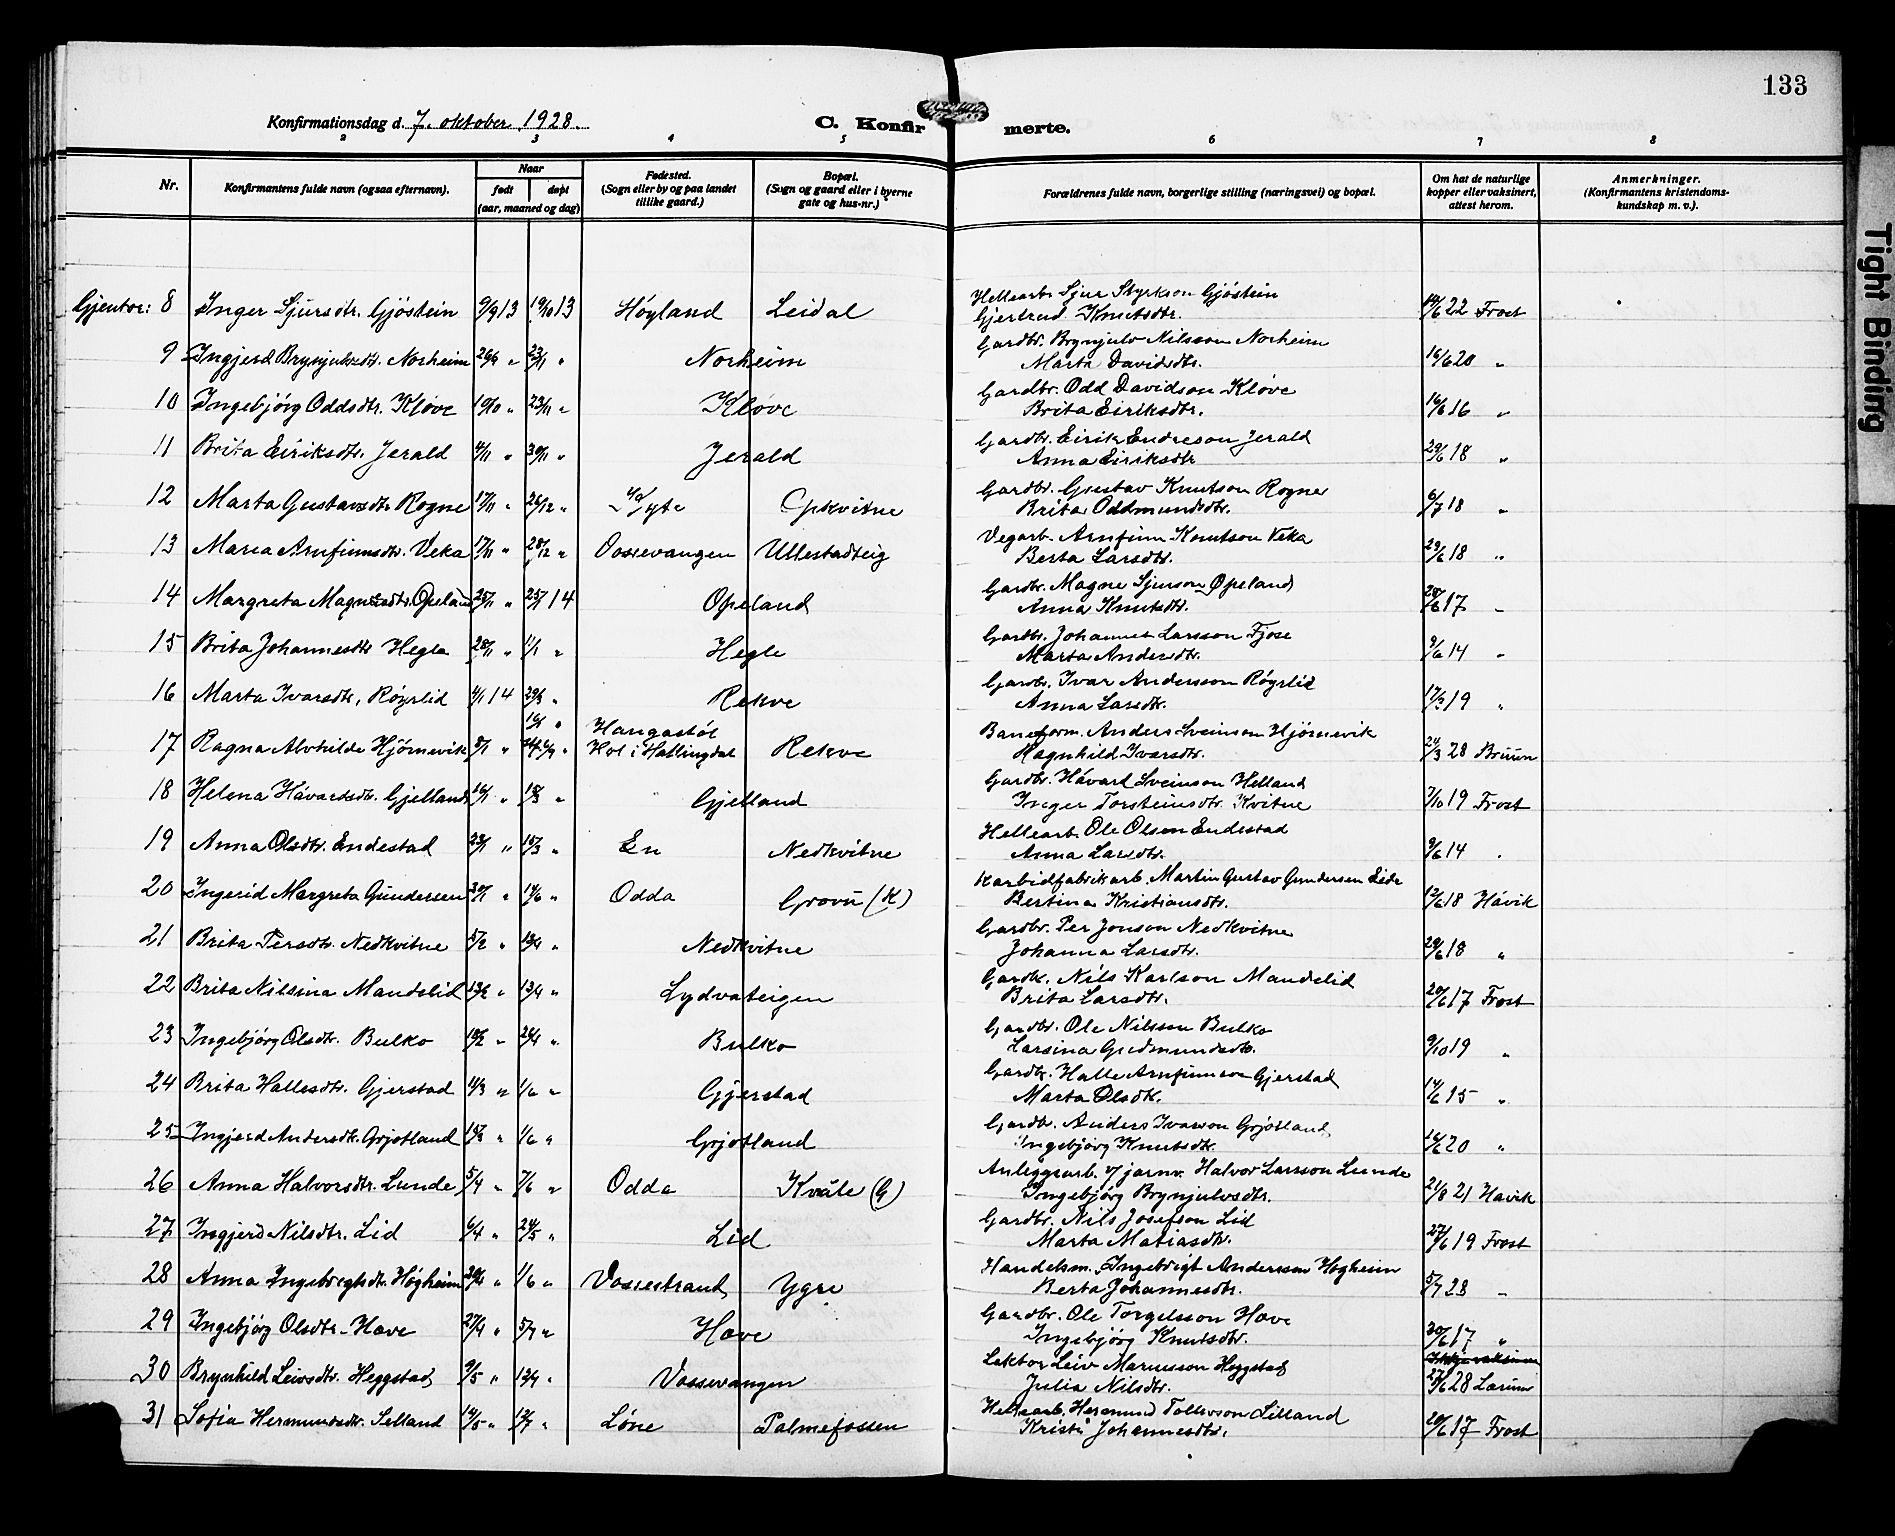 133
Konfirmationsdag d. 7. oktober 1928.
C. Konfirmerte.
2 3 4 5 6 7 8
Nr. Konfirmantens fulde navn (ogsaa efternavn). Naar født døpt (aar, maaned og dag) Fødested. (Sogn eller by og paa landet tillike gaard.) Bopæl. (Sogn og gaard eller i byerne gate og hus-nr.) Forældrenes fulde navn, borgerlige stilling (næringsvei) og bopæl. Om hat de naturlige kopper eller vaksinert, attest herom. Anmerkninger. (Konfirmantens kristendomskundskap m. v.).
Gjentor: 8 Inger Sjursdtr. Gjøstein 9/9 13 19/10 13 Høyland Leidal Hellearb. Sjur Styrkson Gjøstein
Gjertrud Knutsdtr. 14/6 22 Frost
9 Ingjerd Brynjulvsdtr. Norheim 26/9 " 23/11 " Norheim Gardbr. Brynjulv Nilsson Norheim
Marta Davidsdtr. 16/6 20 "
10 Ingebjørg Oddsdtr. Kløve 19/10 " 23/11 " Kløve Gardbr. Odd Davidson Kløve
Brita Eiriksdtr. 16/6 16 "
11 Brita Eiriksdtr. Jerald 4/11 " 30/11 " Jerald Gardbr. Eirik Endreson Jerald
Anna Eiriksdtr 29/6 18 "
12 Marta Gustavsdtr. Rogne 17/11 " 26/12 " Opkvitne Gardbr. Gustav Knutson Rogne
Brita Oddmundsdtr. 6/7 18 "
13 Maria Arnfinnsdtr. Veka 17/11 " 28/12 " Vossevangen Ullestadteig Vegarb. Arnfinn Knutson Veka
Berta Larsdtr. 29/6 18 "
14 Margreta Magnesdtr. Opeland 25/11 " 25/1 14 Opeland Gardbr. Magne Sjurson Opeland
Anna Knutsdtr. 28/6 17 "
15 Brita Johannesdtr Hegle 28/11 " 1/1 " Hegle Gardbr. Johannes Larsson Fjose
Marta Andersdtr. 9/6 14 "
16 Marta Ivarsdtr. Røyrlid 4/1 14 29/3 " Rekve Gardbr. Ivar Andersson Røyrlid
Anna Larsdtr. 17/2 19 "
17 Ragna Alvhilde Hjørnevik 8/1 " Haugastøl
Hol i Hallingdal Rekve Baneform. Anders Sveinson Hjørnevik
Ragnhild Ivarsdtr. 24/3 28 Bruun
18 Helena Håvardsdtr. Gjelland 16/1 " 15/3 " Gjelland Gardbr. Håvard Sveinson Helland
Inger Torsteinsdtr. Kvitne 7/10 19 Frost
19 Anna Olsdtr. Endestad 23/1 " 15/3 " En Nedkvitne Hellearb. Ole Olson Endestad
Anna Larsdtr. 9/6 14 "
20 Ingerid Margreta Gundersen 30/1 " 14/6 " Odda Grovu (K) Karbidfabrikarb. Martin Gustav Gundersen Eide
Bertina Kristiansdtr. 12/6 18 Håvik
21 Brita Persdtr. Nedkvitne 5/2 " 13/4 " Nedkvitne Gardbr. Per Jonson Nedkvitne
Johanna Larsdtr. 29/6 18 "
22 Brita Nilsina Mandelid 13/2 " 13/4 " Lydvateigen Gardbr. Nils Karlson Mandelid
Brita Larsdtr. 20/6 17 Frost
23 Ingebjørg Olsdtr. Bulko 18/2 " 26/4 " Bulko Gardbr. Ole Nilsson Bulko
Larsina Gudmundsdtr. 9/10 19 "
24 Brita Hallesdtr. Gjerstad 11/3 " 1/6 " Gjerstad Gardbr. Halle Arnfinnson Gjerstad
Marta Olsdtr. 14/6 15 "
25 Ingjerd Andersdtr. Grjotland 14/3 " 1/6 " Grjotland Gardbr. Anders Ivarson Grjotland
Ingebjørg Knutsdtr. 16/6 20 "
26 Anna Halvorsdtr. Lunde 5/4 " 7/6 " Odda Kvåle (G) Anleggsarb. v/ jarnv. Halvor Larsson Lunde
Ingebjørg Brynjulvsdtr. 21/8 21 Havik
27 Ingjerd Nilsdtr. Lid 6/4 " 24/5 " Lid Gardbr. Nils Josefson Lid
Marta Matiasdtr. 27/6 19 Frost
28 Anna Ingebrigtsdtr. Høgheim 30/4 " 1/6 " Vossestrand Ygre Handelsm. Ingebrigt Andersson Høgheim
Berta Johannesdtr. 5/7 28 "
29 Ingebjørg Olsdtr. Hove 27/4 " 5/7 " Hove Gardbr. Ole Torgelsson Hove
Ingebjørg Knutsdtr. 30/6 17 "
30 Brynhild Leivsdtr. Heggstad 9/5 " 13/9 " Vossevangen Lektor Leiv Mariusson Heggstad
Julia Nilsdtr. 27/6 28 Larum
31 Sofia Hermundsdtr. Selland 14/5 " 12/7 " Løne Palmefossen Hellearb. Hermund Tollevson Selland
Kristi Johannesdtr. 20/6 17 Frost
Tight Binding